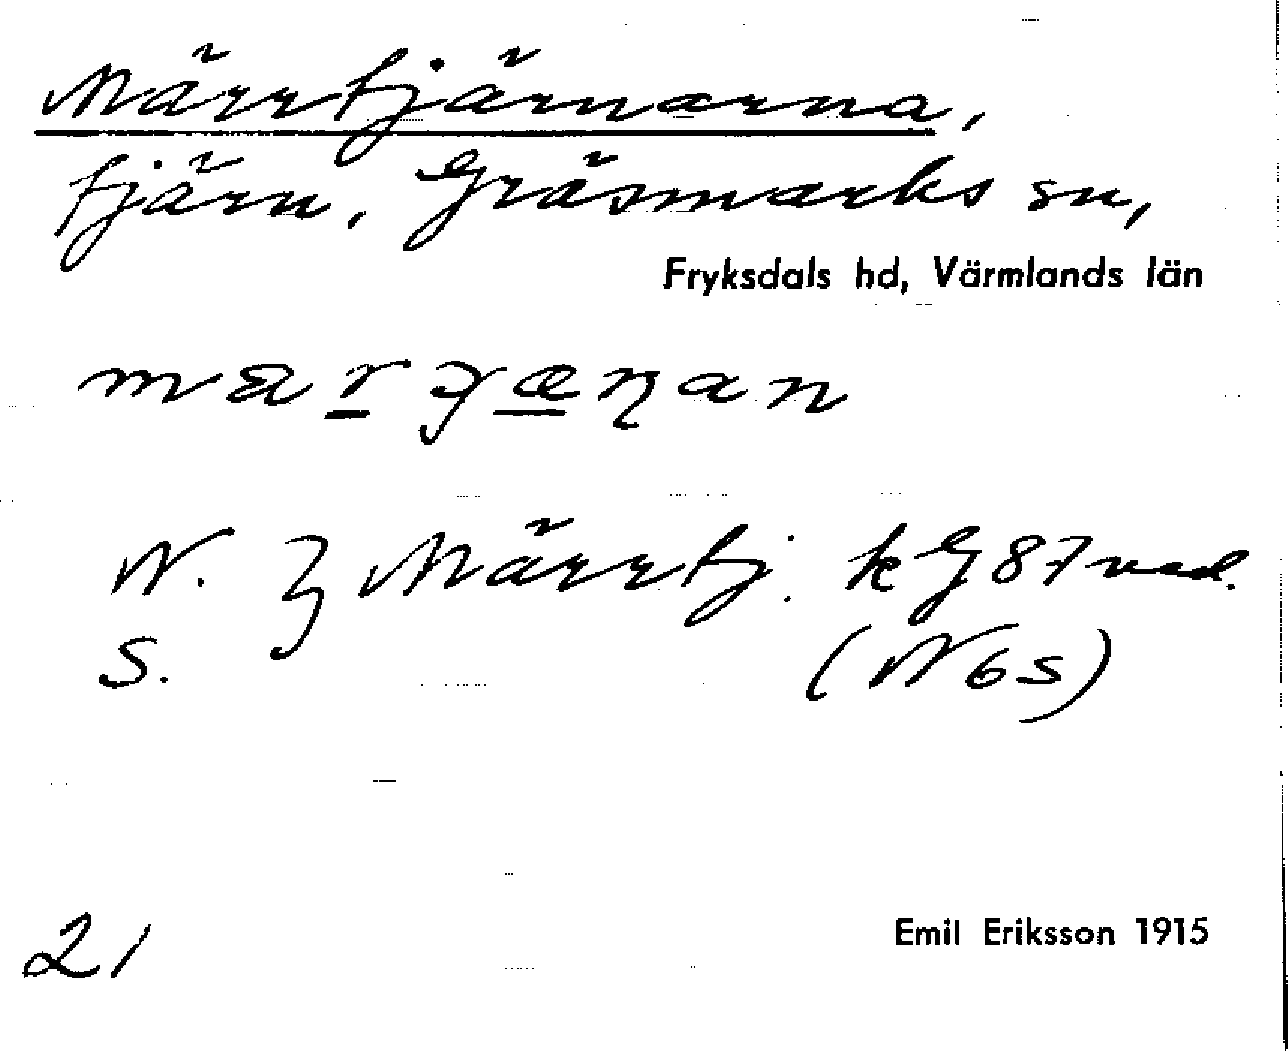 Märrtjärnarna,
tjärn, Gräsmarks sn,
Fryksdals hd, Värmlands län
N. } Märrtj. kG 87 ned.
S. (N 6 s)
21
Emil Eriksson 1915